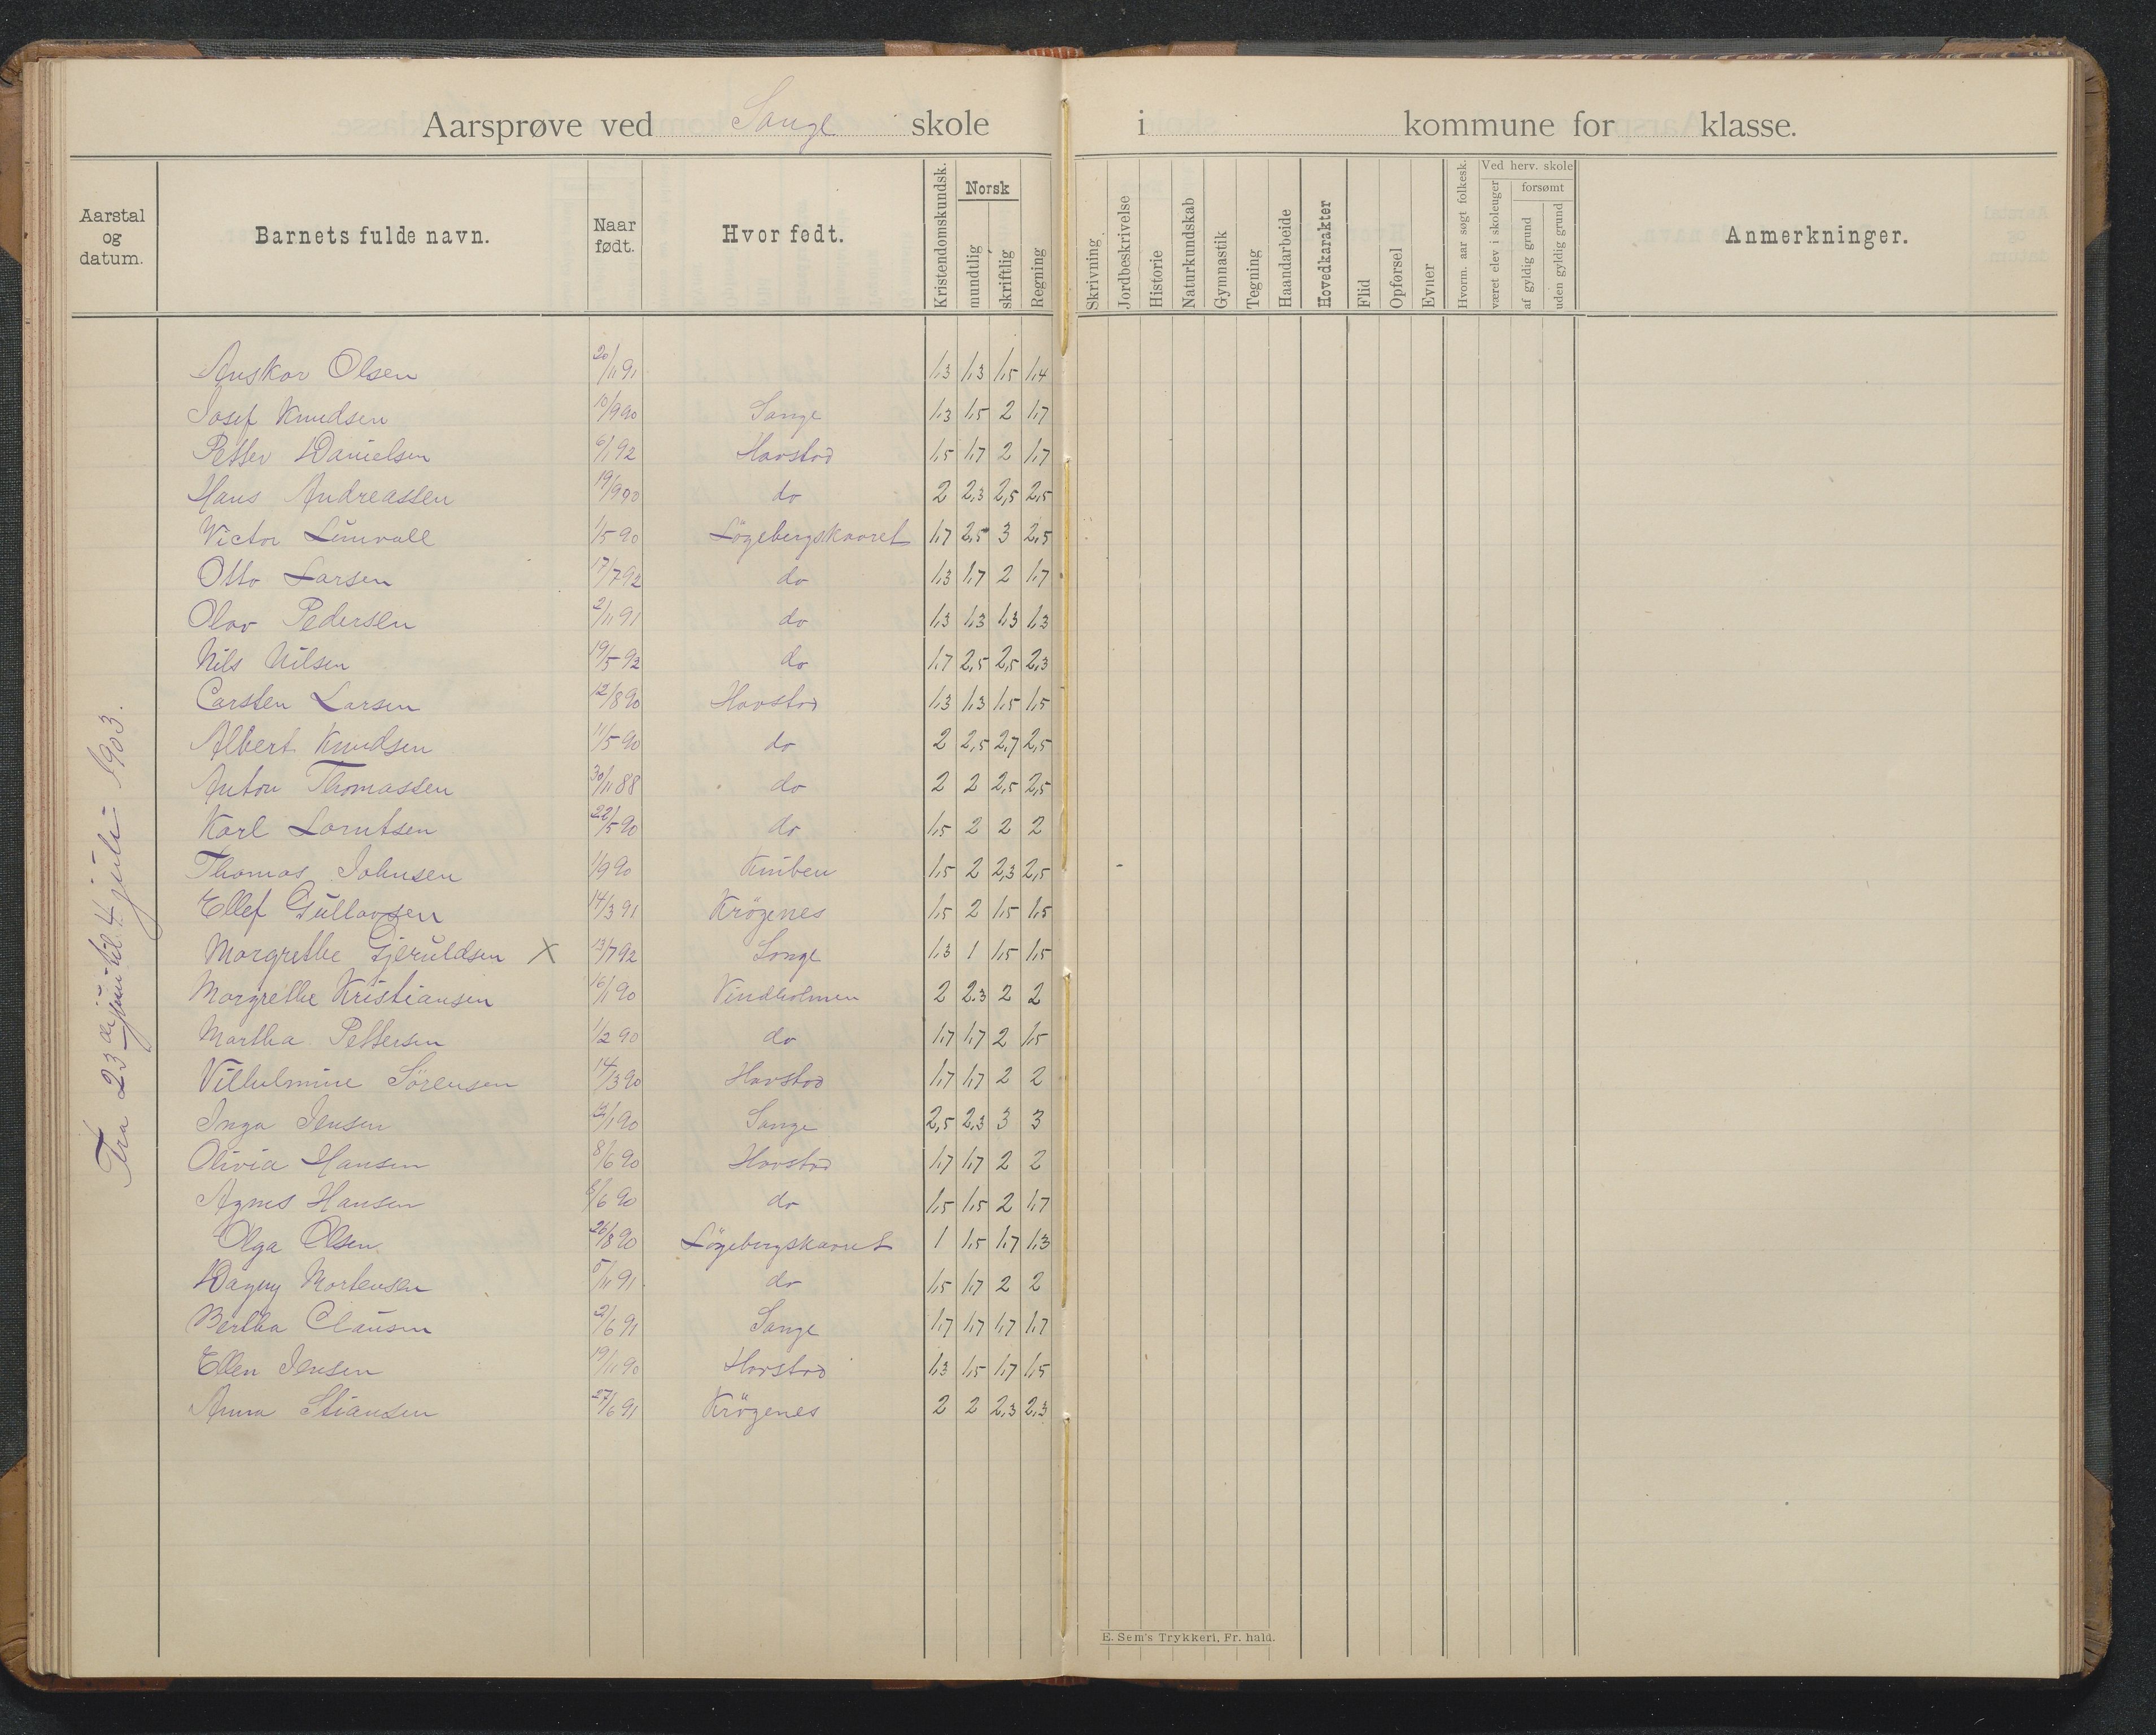 Aarsprøve ved Songe skole i kommune for klasse.
Aarstal og datum. Barnets fulde navn. Naar født. Hvor født. Kristendomskundsk. Norsk mundtlig skriftlig Regning Skrivning Jordbeskrivelse Historie Naturkundskab Gymnastik Tegning Haandarbeide Hovedkarakter Flid Opførsel Evner Hvorm. aar søgt folkesk. Ved herv. skole været elev i skoleuger forsømt af gyldig grund uden gyldig grund Anmerkninger.
Fra 23de juni til 4 juli 1903.
Anskar Olsen 20/11 91 1,3 1,3 1,5 1,4
Josef Knudsen 10/9 90 Songe 1,3 1,5 2 1,7
Petter Danielsen 6/1 92 Havstad 1,5 1,7 2 1,7
Hans Andreassen 19/9 90 do 2 2,3 2,5 2,5
Victor 1/5 90 Lögebergskaaret 1,7 2,5 3 2,5
Otto Larsen 17/7 92 do 1,3 1,7 2 1,7
Olav Pedersen 2/11 91 do 1,3 1,3 1,3 1,3
Nils Nilsen 19/5 92 do 1,7 2,5 2,5 2,3
Carsten Larsen 12/8 90 Havstad 1,3 1,3 1,5 1,5
Albert Knudsen 11/5 90 do 2 2,5 2,7 2,5
Anton Thomassen 30/11 88 do 2 2 2,5 2,5
Karl Lorntsen 22/5 90 do 1,5 2 2 2
Thomas Johnsen 1/9 90 Kniben 1,5 2 2,3 2,5
Ellef Gullovsen 14/3 91 Krögenes 1,5 2 1,5 1,5
Margrethe Gjeruldsen X 13/7 92 Songe 1,3 1 1,5 1,5
Margrethe Kristiansen 16/1 90 Vindholmen 2 2.3 2 2
Martha Pettersen 1/2 90 do 1,7 1,7 2 1,5
Vilhelmine Sörensen 14/3 90 Havstad 1,7 1,7 2 2
Inga Jensen /1 90 Songe 2,5 2,3 3 3
Olivia Hansen 8/6 90 Havstad 1,7 1,7 2 2
Agnes Hansen 8/6 90 do 1,5 1,5 2 1,7
Olga Olsen 26/8 90 Lögebergskaaret 1 1,5 1,7 1,3
Dagny Mortensen 5/11 91 do 1,5 1,7 2 2
Bertha Clausen 2/6 91 Songe 1,7 1,7 1,7 1,7
Ellen Jensen 19/11 90 Havstad 1,3 1,5 1,7 1,5
Anna Stiansen 27/6 91 Krögenes 2 2 2,3 2,3
E. Sem's Trykkeri, Fr. hald.